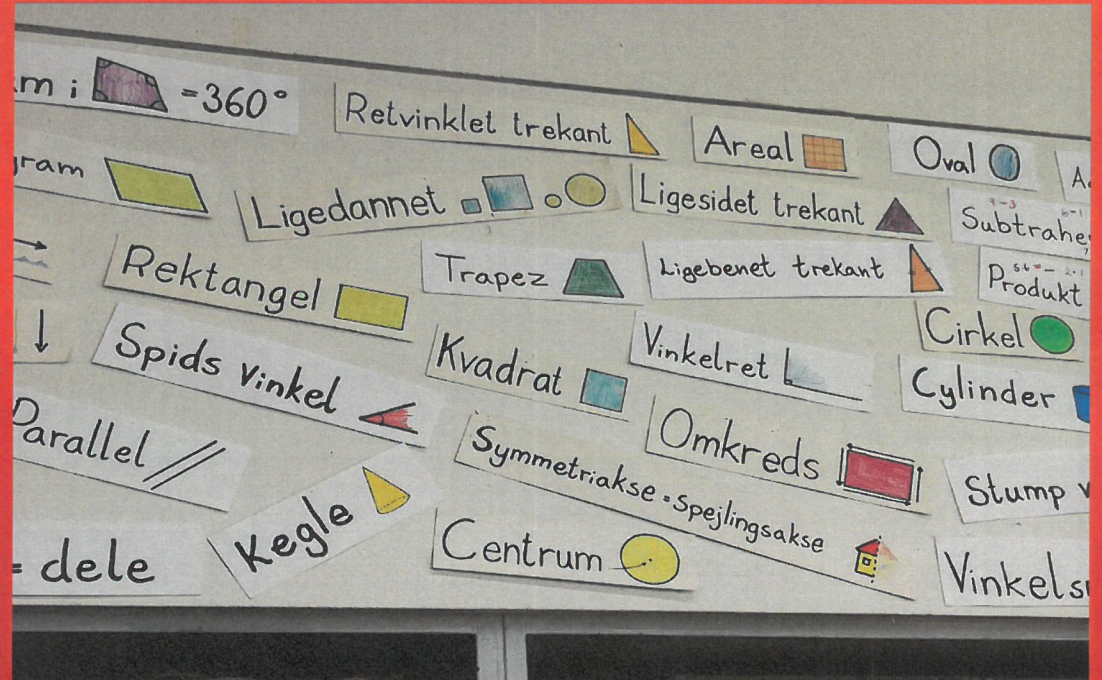 m i = 360°
Retvinklet trekant
Areal
Oval
gram
Ligedannet
Ligesidet trekant
Subtrahe
Rektangel
Trapez
Ligebenet trekant
Produkt
Cirkel
Spids Vinkel
Kvadrat
Vinkelret
Cylinder
Parallel
Symmetriakse = Spejlingsakse
Omkreds
Stump v
= dele
Kegle
Centrum
Vinkels